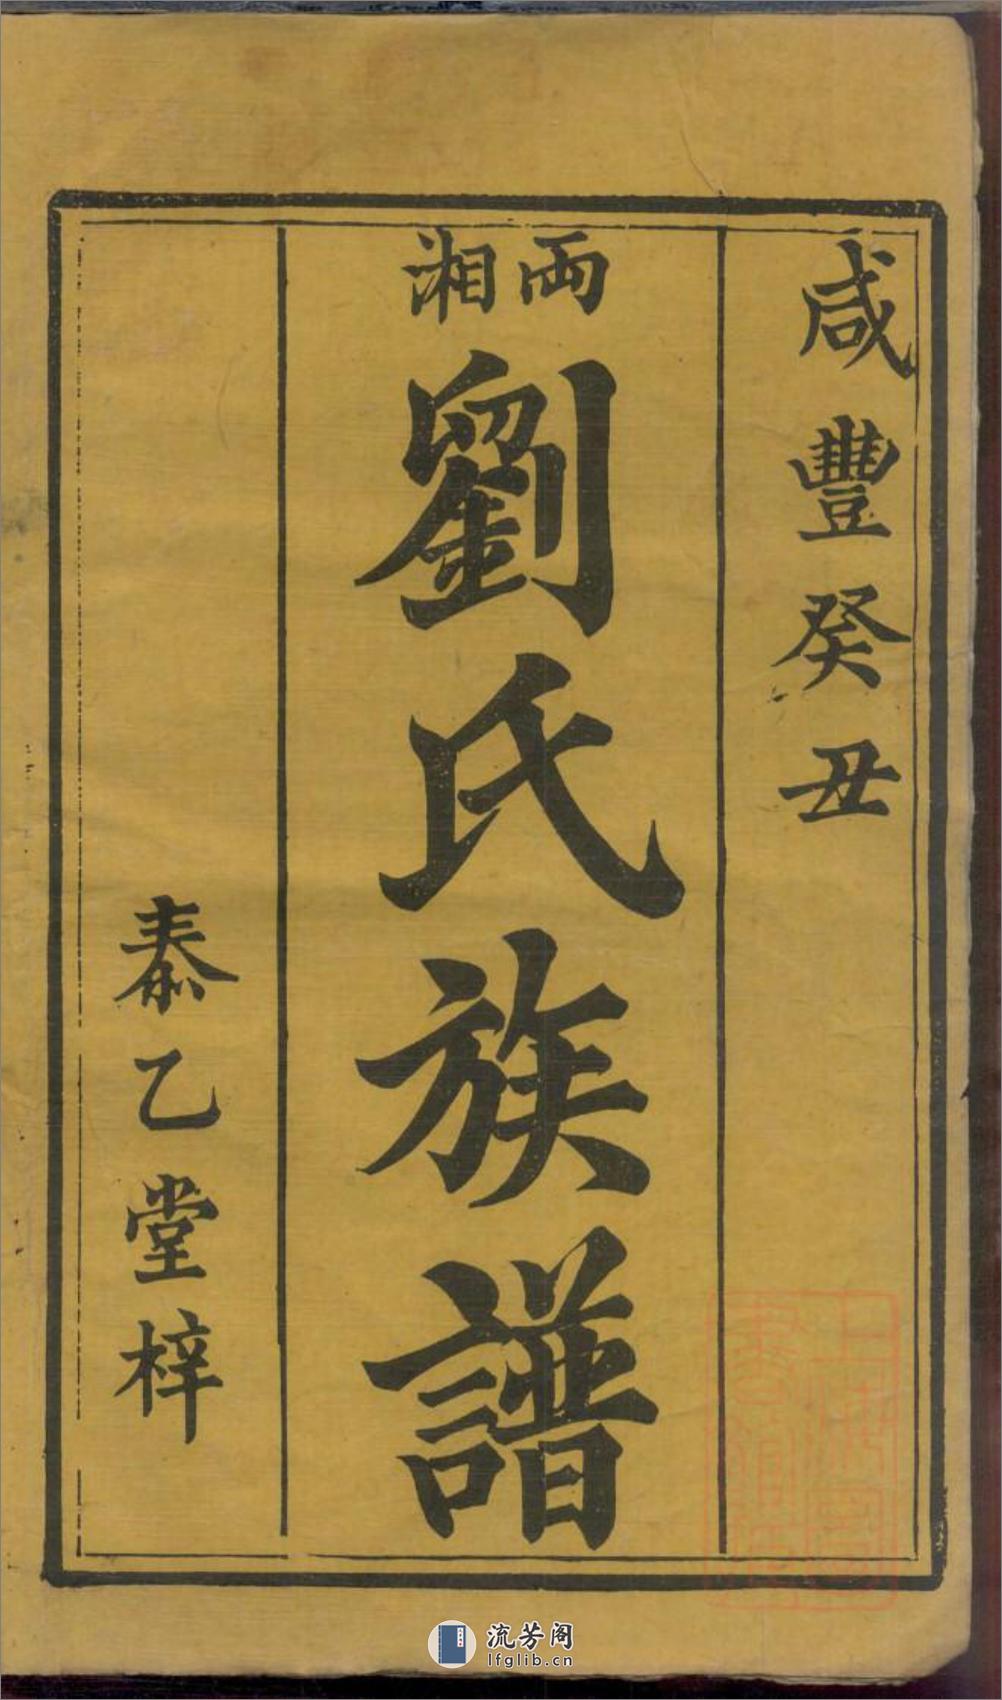 咸豐癸丑
两湘
劉氏族譜
泰乙堂梓
流芳阁
lfglib.cn